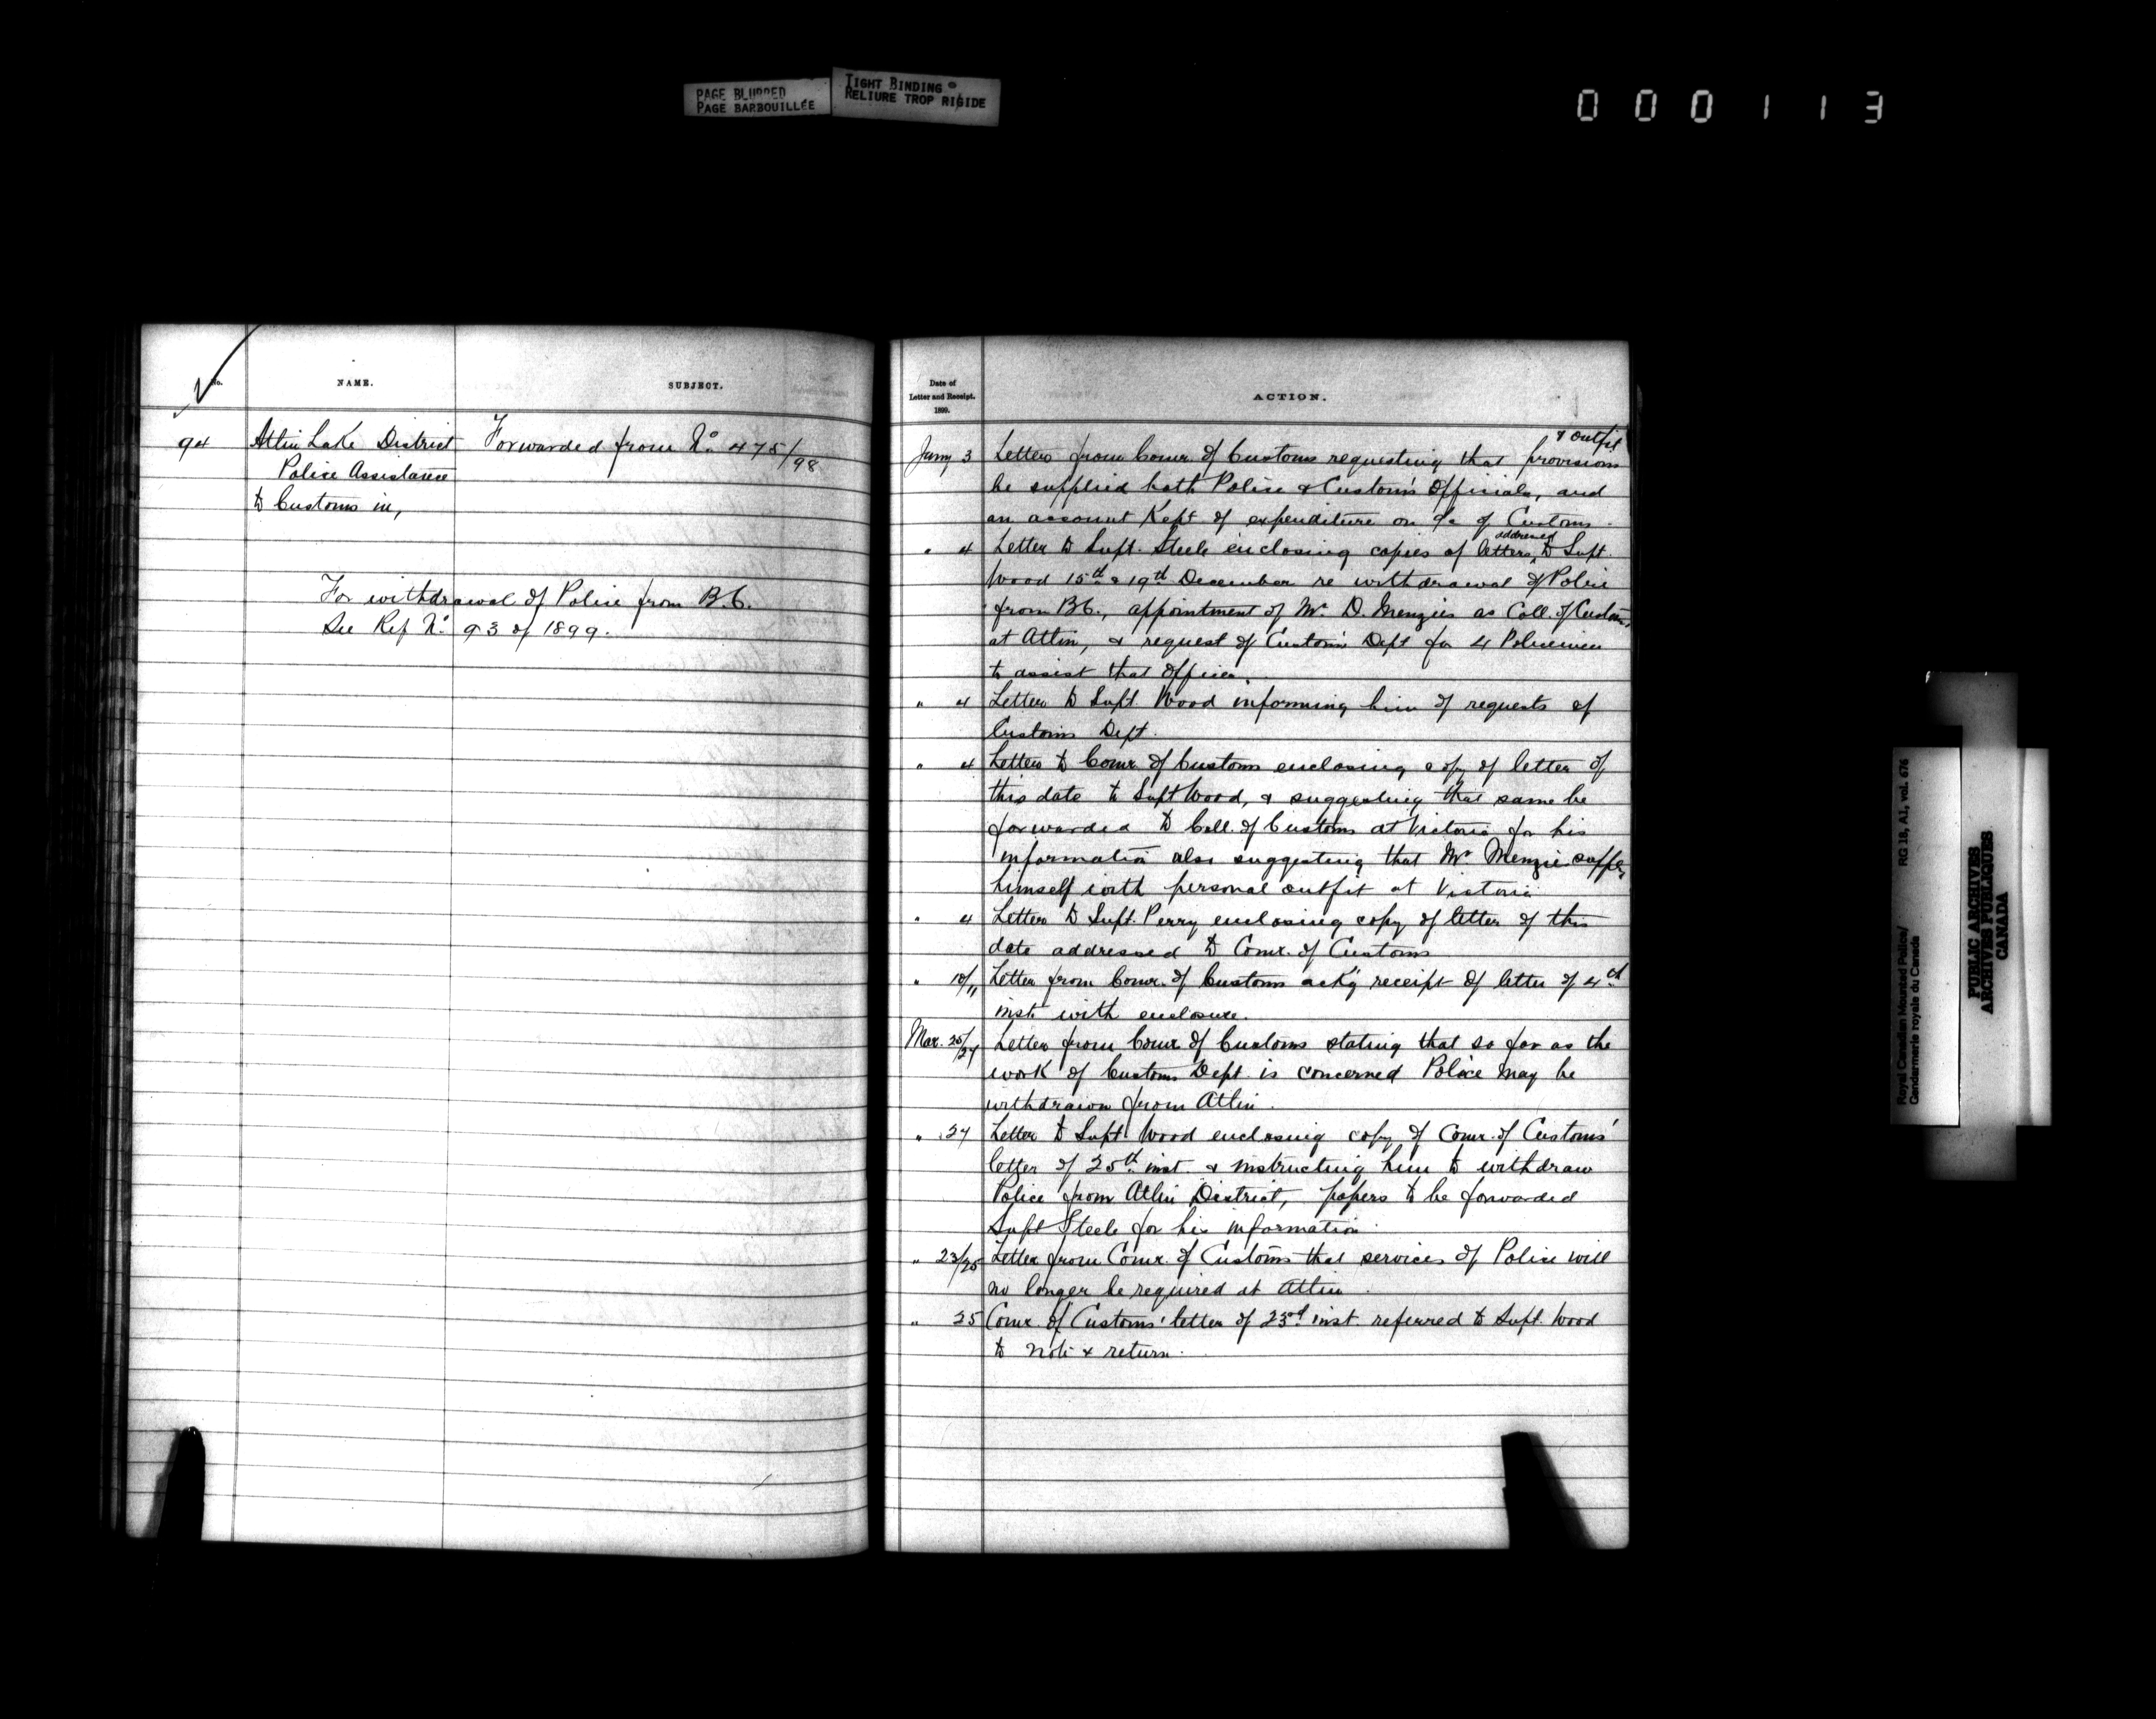 PAGE BLURRED
PAGE BARBOUILLÉE
TIGHT BINDING
RELIURE TROP RIGIDE
000113
No.
NAME.
SUBJECT.
94
Atlin Lake District
Forwarded from No. 475/98
Police Assistance
to Customs in,
For withdrawal of Police from B.C.
See Ref No. 93 of 1899.
Date of
Letter and Receipt.
1899.
ACTION.
& outfit
Janry 3 Letter from Comr. of Customs requesting that provisions
be supplied both Police & Customs Officials, and
an account Kept of expenditure on a/c of Customs.
addressed
" 4 Letter to Supt. Steele enclosing copies of letters to Supt.
Wood 15th & 19th December re withdrawal of Police
from B.C., appointment of Mr. D. Menzies as Coll. of Customs
at Atlin, & request of Customs Dept for 4 Policemen
to assist that Officer.
" 4 Letter to Supt. Wood informing him of requests of
Customs Dept.
" 4 Letter to Comr. of Customs enclosing copy of letter of
this date to Supt Wood, & suggesting that same be
forwarded to Coll. of Customs at Victoria for his
information also suggesting that Mr Menzies
himself with personal outfit at Victoria
" 4 Letter to Supt. Perry enclosing copy of letter of this
date addressed to Comr. of Customs
" 10/11 Letter from Comr. of Customs ack'g receipt of letter of 4th
inst. with enclosure.
Mar. 25/27 Letter from Comr. of Customs stating that so far as the
work of Customs Dept. is concerned Police may be
withdrawn from Atlin.
" 27 Letter to Supt. Wood enclosing copy of Comr. of Customs'
letter of 25th inst. & instructing him to withdraw
Police from Atlin District, papers to be forwarded
Supt Steele for his information.
" 23/25 Letter from Comr. of Customs that services of Police will
no longer be required at Atlin.
" 25 Comr. of Customs' letter of 23rd inst. referred to Supt. Wood
to note & return.
Royal Canadian Mounted Police/ RG 18, A1, vol. 676
Gendarmerie royale du Canada
PUBLIC ARCHIVES
ARCHIVES PUBLIQUES
CANADA